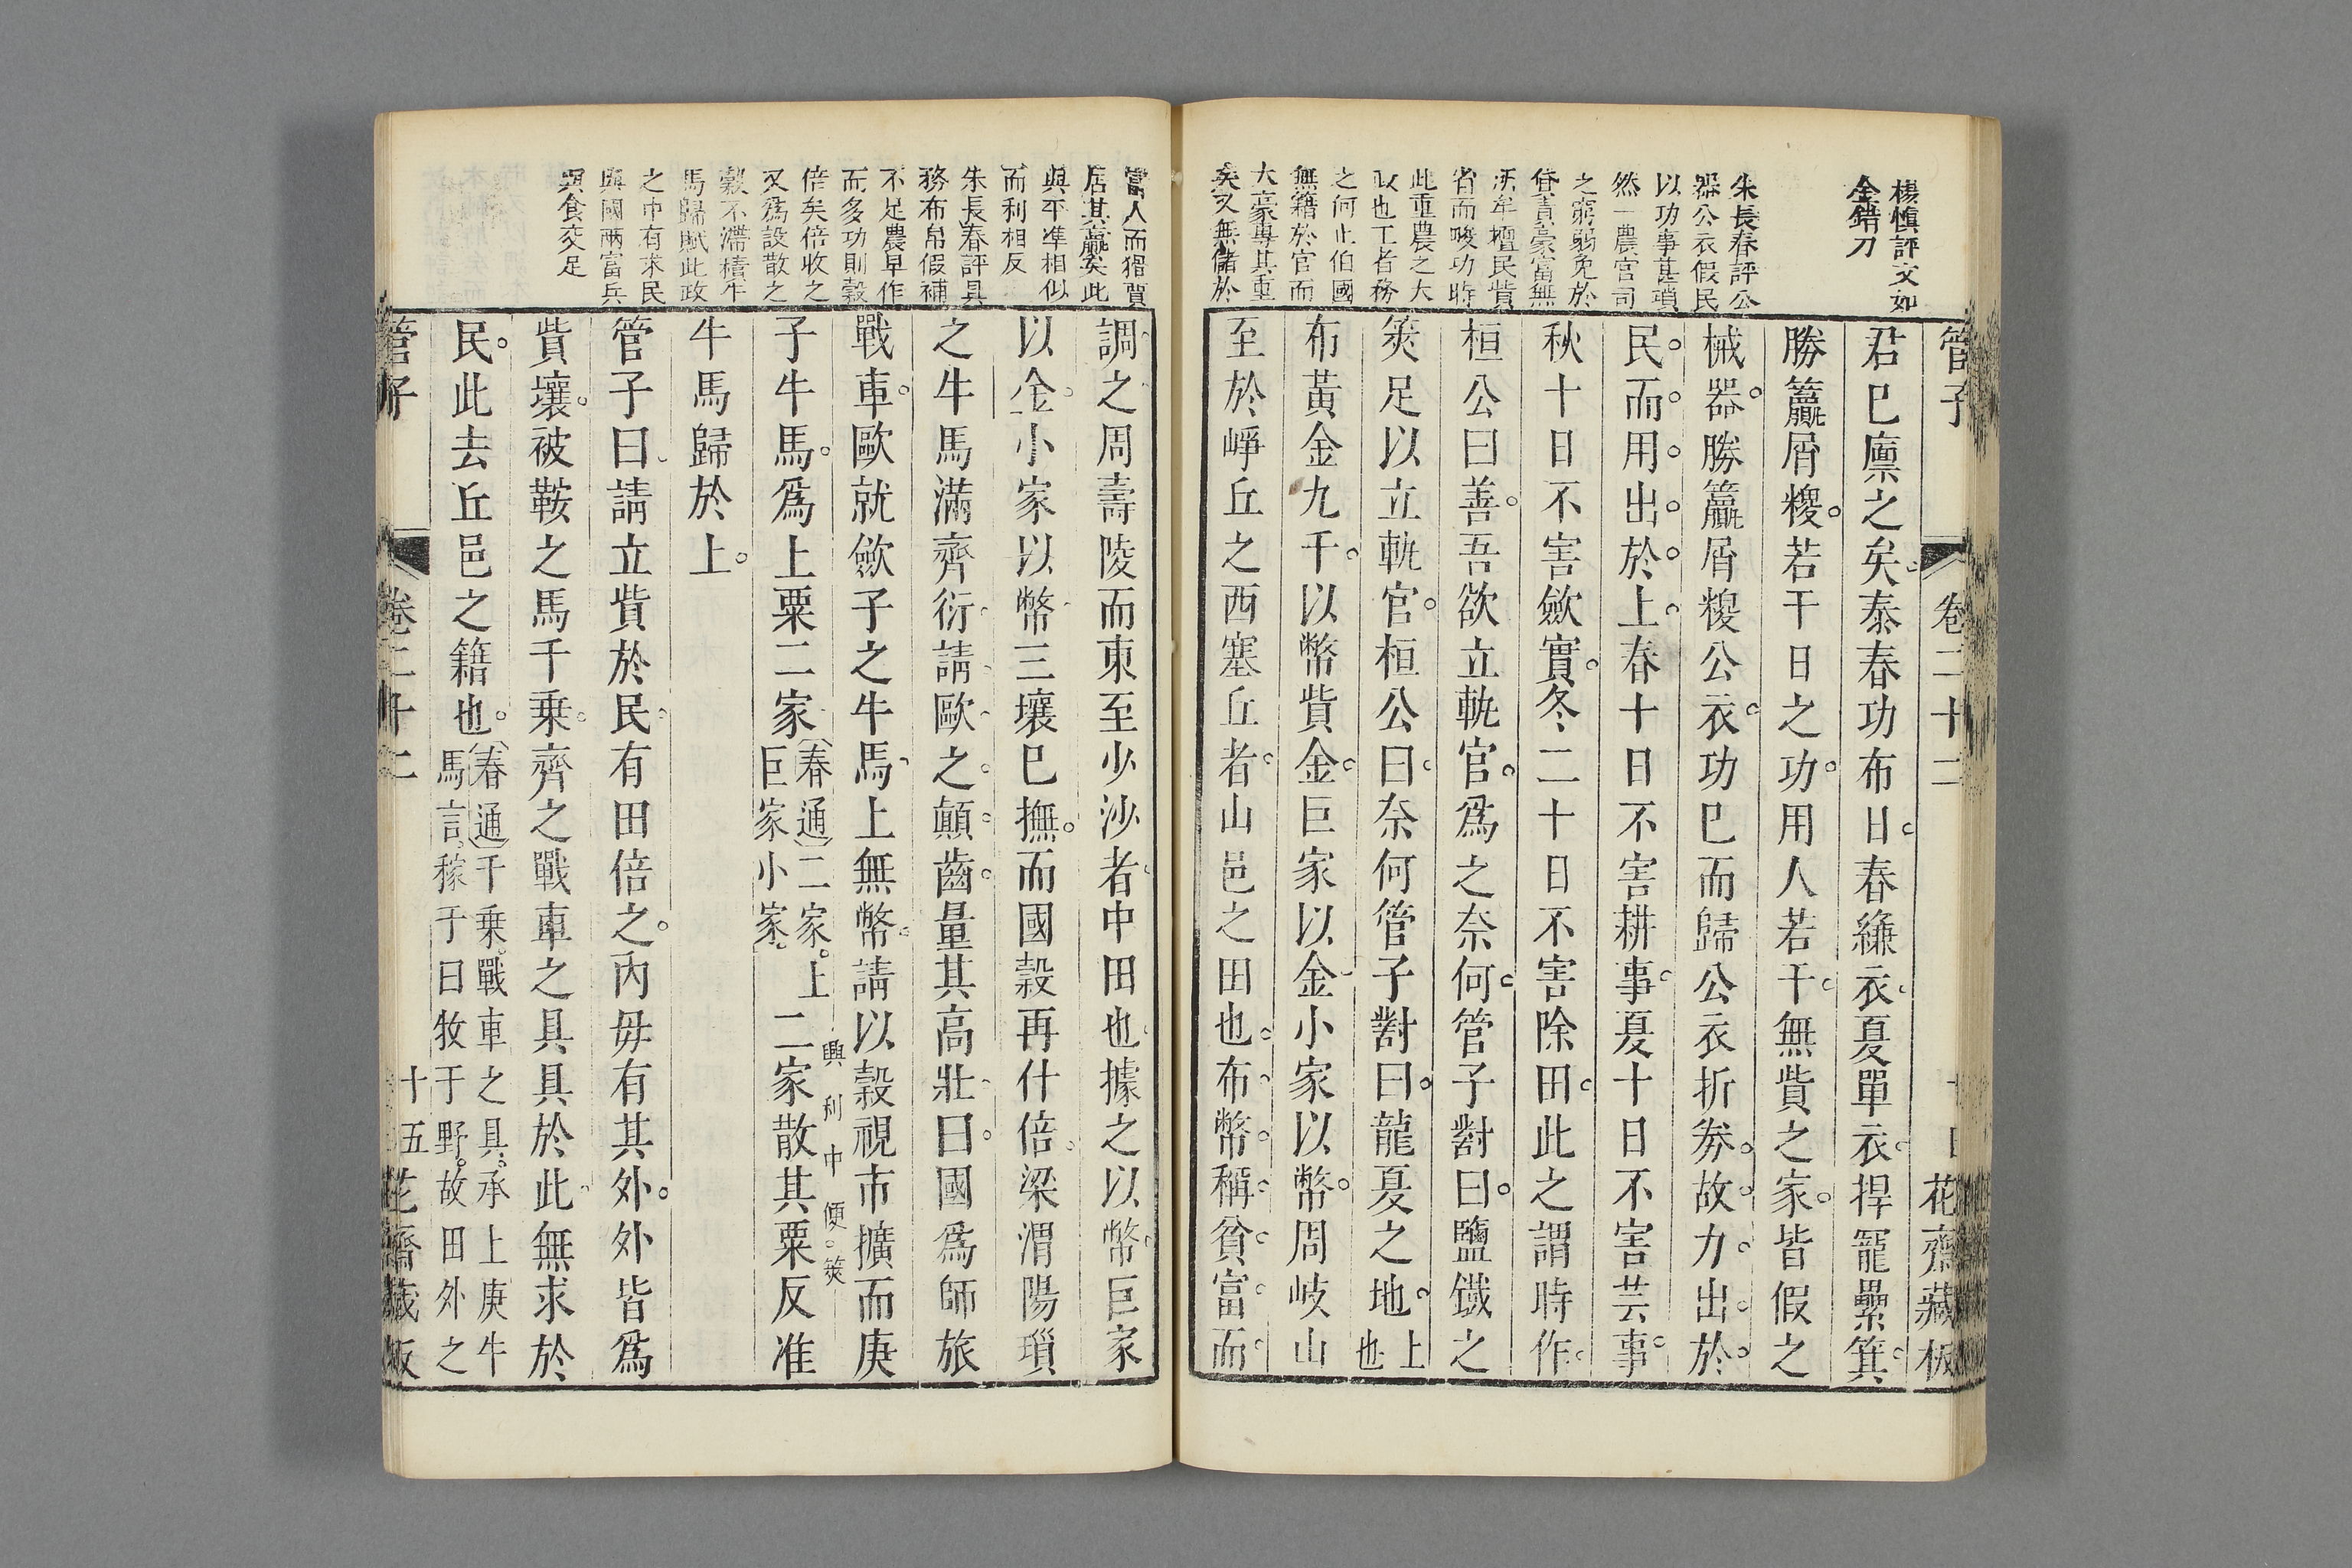 楊慎評文如
金錯刀
朱長春評公
器公衣假民
以功事甚瑣
然一農官司
之窮弱免於
省而畯功時
此重農之大
政也工者務
之何止伯國
無籍於官而
大豪專其重
矣又無儲於
管子 卷二十二 花齋藏板
君已廩之矣泰春功布日春縑衣夏單衣捍寵壘箕
勝籯屑𥻦若干日之功用人若干無貲之家皆假之
械器勝籯屑𥻦公衣功已而歸公衣折劵故力出於
民而用出於上春十日不害耕事夏十日不害芸事
秋十日不害斂實冬二十日不害除田此之謂時作
桓公曰善吾欲立軌官爲之奈何管子對曰鹽鐵之
筴足以立軌官桓公曰奈何管子對曰龍夏之地上也
布黃金九千以幣貲金巨家以金小家以幣周岐山
至於崢丘之西塞丘者山邑之田也布幣稱貧富而
當人而猾賈
居其贏矣此
與平準相似
而利相反
朱長春評具
務布帛假補
不足農早作
而多功則穀
倍矣倍收之
又爲設散之
穀不滯積牛
馬歸賦此政
之中有求民
與國兩富兵
與食交足
調之周壽陵而東至少沙者中田也據之以幣巨家
以金小家以幣三壤已撫而國穀再什倍梁渭陽瑣
之牛馬滿齊衍請歐之顛齒量其高壯曰國爲師旅
戰車歐就斂子之牛馬上無幣請以穀視市擴而庚
興利中便筴
子牛馬爲上粟二家〔春通〕二家上巨家小家二家散其粟反准
牛馬歸於上
管子曰請立貲於民有田倍之內毋有其外外皆爲
貲壤被鞍之馬千乗齊之戰車之具具於此無求於
民此去丘邑之籍也〔春通〕千乗戰車之具承上庚牛馬言稼于曰牧于野故田外之
管子 卷二十二 十五 花齋藏板